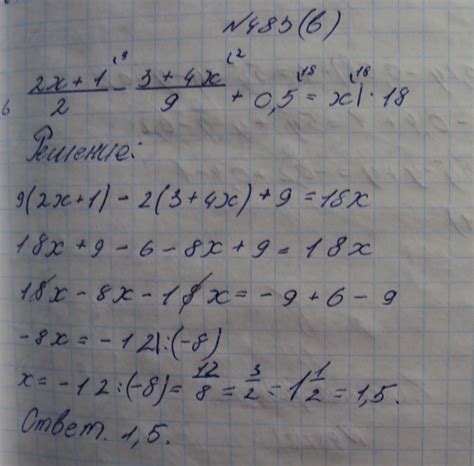 №483(в)
(2x+1)/2 ⁽⁹ - (3+4x)/9 ⁽² + 0,5 ⁽¹⁸ = x ⁽¹⁸ |·18
Решение:
9(2x+1) - 2(3+4x) + 9 = 18x
18x + 9 - 6 - 8x + 9 = 18x
18x - 8x - 18x = -9 + 6 - 9
-8x = -12|:(-8)
x = -12:(-8) = 12/8 = 3/2 = 1 1/2 = 1,5.
Ответ. 1,5.